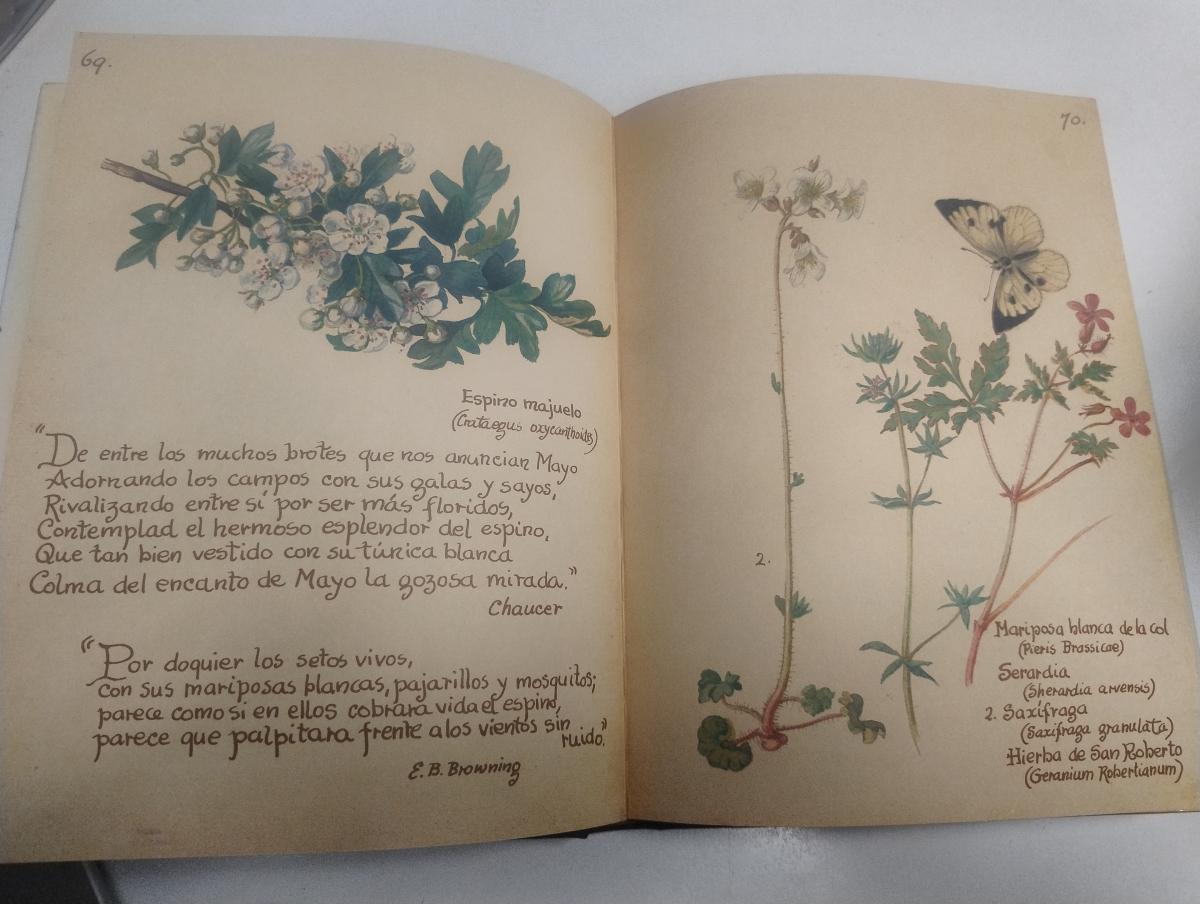 69.
Espino majuelo
(Crataegus oxycanthoides)
"De entre los muchos brotes que nos anuncian Mayo
Adornando los campos con sus galas y sayos,
Rivalizando entre sí por ser más floridos,
Contemplad el hermoso esplendor del espino,
Que tan bien vestido con su túnica blanca
Colma del encanto de Mayo la gozosa mirada."
Chaucer
"Por doquier los setos vivos,
con sus mariposas blancas, pajarillos y mosquitos;
parece como si en ellos cobrara vida el espino,
parece que palpitara frente a los vientos sin
ruido."
E. B. Browning
70.
2.
Mariposa blanca de la col
(Pieris Brassicae)
Serardia
(Sherardia arvensis)
2. Saxífraga
(Saxifraga granulata)
Hierba de San Roberto
(Geranium Robertianum)